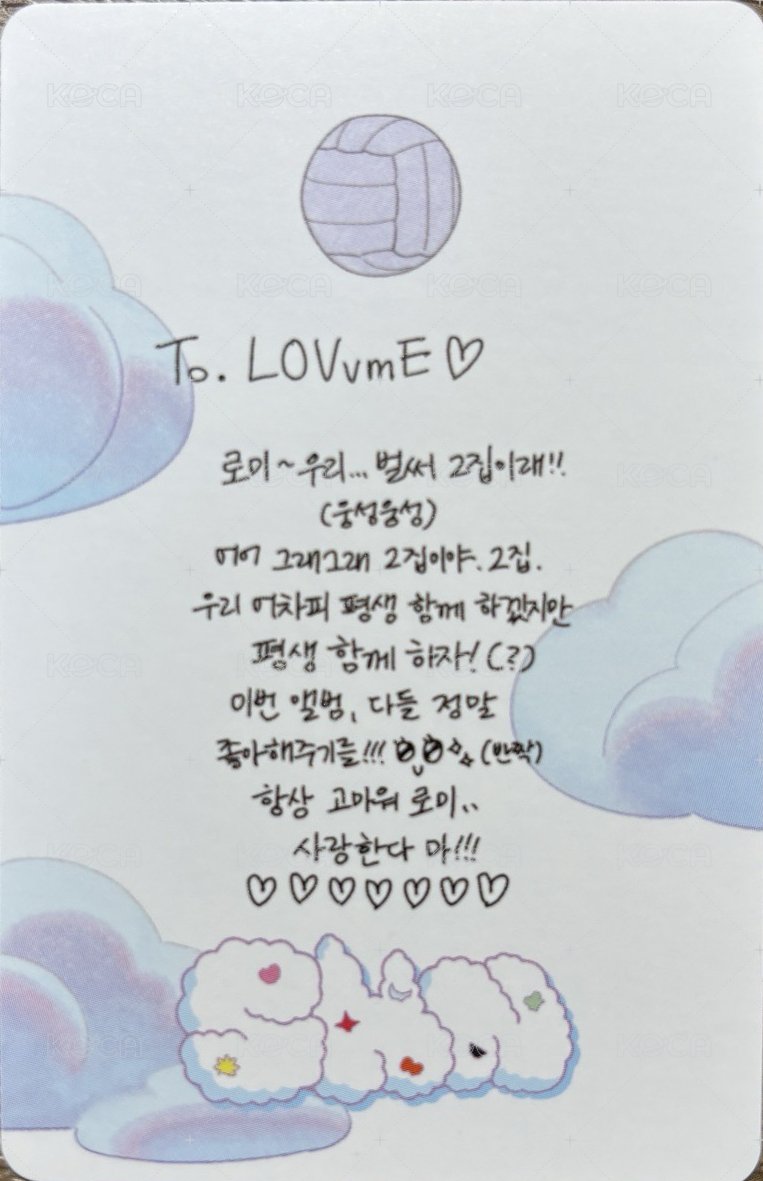 To. LOVvmE♡
로미~우리... 벌써 2집이래!!
(웅성웅성)
어어 그래그래 2집이야. 2집.
우리 어차피 평생 함께 하겠지만
평생 함께 하자! (?)
이번 앨범, 다들 정말
좋아해주기를!!! (반짝)
항상 고마워 로미..
사랑한다 마!!!
♡♡♡♡♡♡♡
KOCA